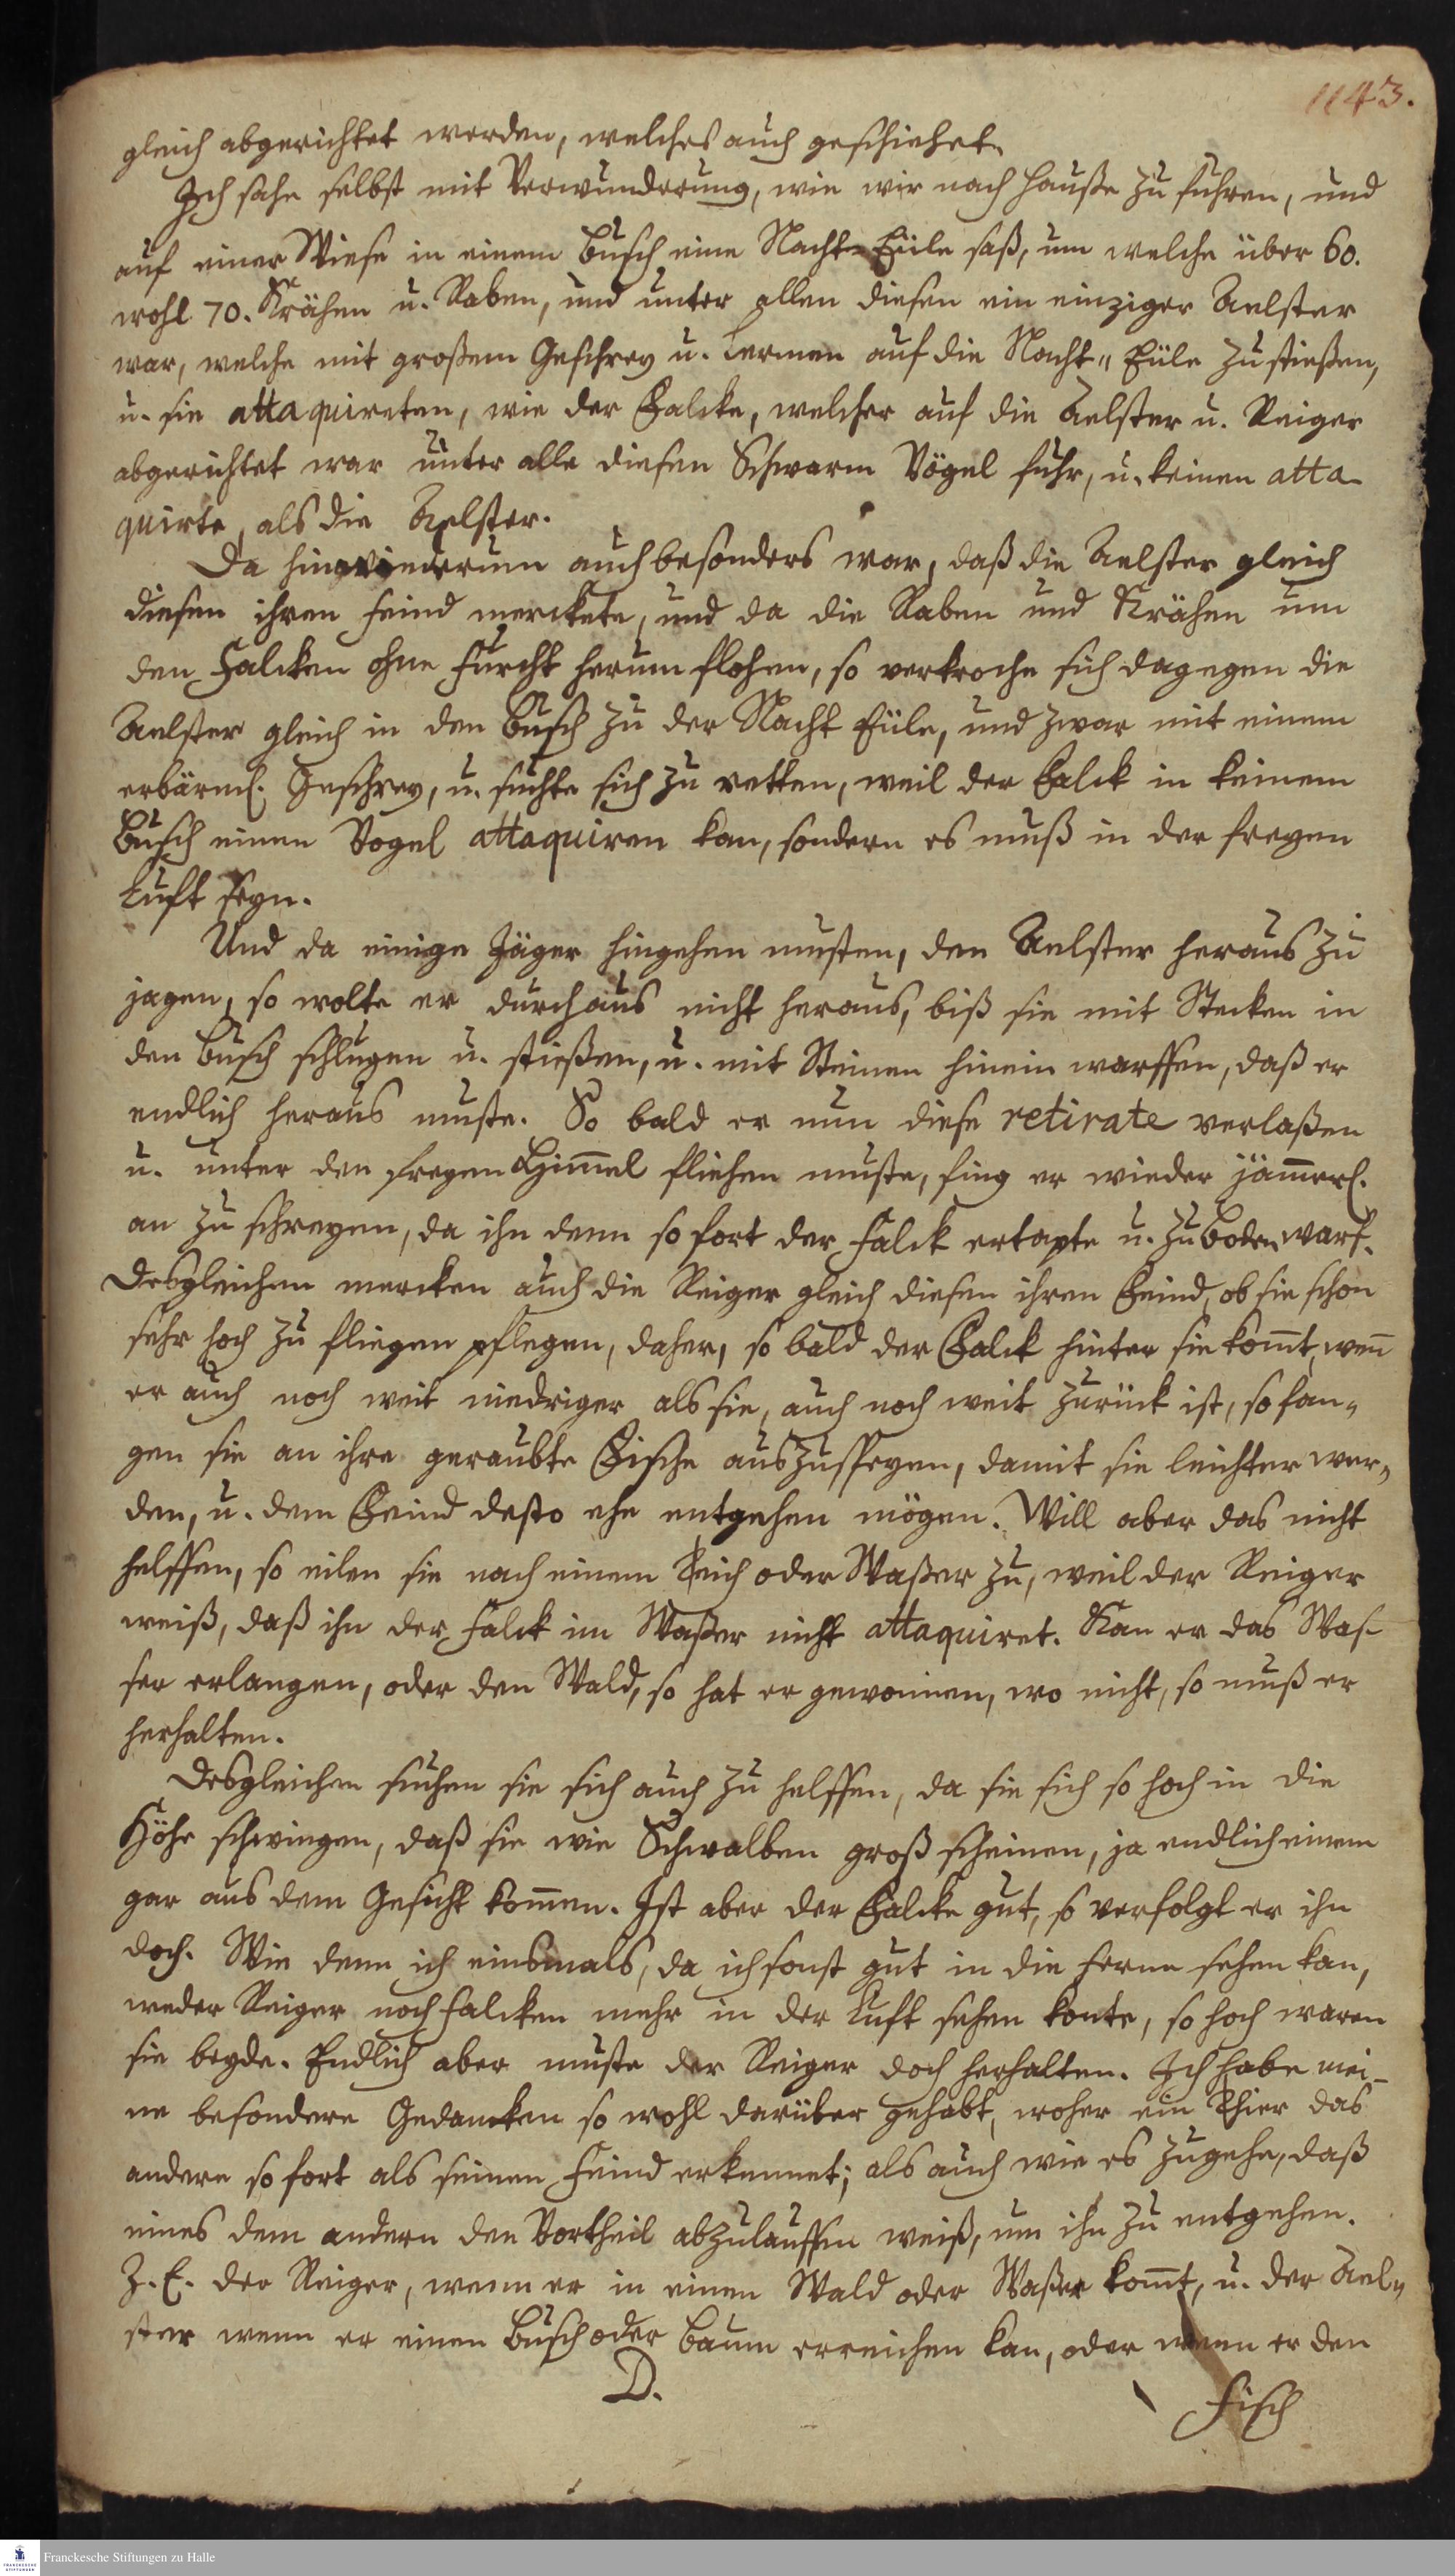 1143.
gleich abgerichtet werden, welches auch geschiehet.
Ich sahe selbst mit Verwunderung, wie wir nach Hauße zu fuhren, und
auf einer Wiese in einem Busch eine Nacht-Eüle saß, um welche über 60.
wohl 70. Krähen u. Raben, und unter allen diesen ein einziger Aelster
war, welche mit großem Geschrey u. Lermen auf die Nacht-Eüle zustießen,
u. sie attaquireten, wie der Falcke, welcher auf die Aelster u. Reiger
abgerichtet war unter alle diesen Schwarm Vögel fuhr, u. keinen atta-
quirte, als die Aelster.
Da hinwiederum auch besonders war, daß die Aelster gleich
diesen ihren Feind merckete, und da die Raben und Krähen um
den Falcken ohne Furcht herum flohen, so verkroche sich dagegen die
Aelster gleich in den Busch zu der Nacht Eüle, und zwar mit einem
erbärml. Geschrey, u. suchte sich zu retten, weil der Falck in keinem
Busch einen Vogel attaquiren kan, sondern es muß in der freyen
Luft seyn.
Und da einige Jäger hingehen musten, den Aelster heraus zu
jagen, so wolte er durchaus nicht heraus, biß sie mit Stecken in
den Busch schlugen u. stießen, u. mit Steinen hinein warffen, daß er
endlich heraus muste. So bald er nun diese retirate verlaßen
u. unter den freyen Him̅el fliehen muste, fing er wieder jäm̅erl.
an zu schreyen, da ihn denn so fort der Falck ertapte u. zu Boden warf.
Desgleichen mercken auch die Reiger gleich diesen ihren Feind, ob sie schon
sehr hoch zu fliegen pflegen, daher, so bald der Falck hinter sie kom̅t, wen̅
er auch noch weit niedriger als sie, auch noch weit zurück ist, so fan-
gen sie an ihre geraubte Fische auszuspeyen, damit sie leichter wer-
den, u. dem Feind desto ehe entgehen mögen. Will aber das nicht
helffen, so eilen sie nach einem Teich oder Waßer zu, weil der Reiger
weiß, daß ihn der Falck im Waßer nicht attaquiret. Kan er das Was-
ser erlangen, oder den Wald, so hat er gewonnen, wo nicht, so muß er
herhalten.
Desgleichen suchen sie sich auch zu helffen, da sie sich so hoch in die
Höhe schwingen, daß sie wie Schwalben groß scheinen, ja endlich einem
gar aus dem Gesicht kom̅en. Ist aber der Falcke gut, so verfolgt er ihn
doch. Wie denn ich einsmals, da ich sonst gut in die Ferne sehen kan,
weder Reiger noch Falcken mehr in der Luft sehen konte, so hoch waren
sie beyde. Endlich aber muste der Reiger doch herhalten. Ich habe mei-
ne besondere Gedancken so wohl darüber gehabt, woher ein Thier das
andere so fort als seinen Feind erkennet; als auch wie es zugehe, daß
eines dem andern den Vortheil abzulauffen weiß, um ihn zu entgehen.
Z. E. der Reiger, wenn er in einen Wald oder Waßer kom̅t, u. der Ael-
ster wenn er einen Busch oder Baum erreichen kan, oder wenn er den
D.
Fisch
Franckesche Stiftungen zu Halle